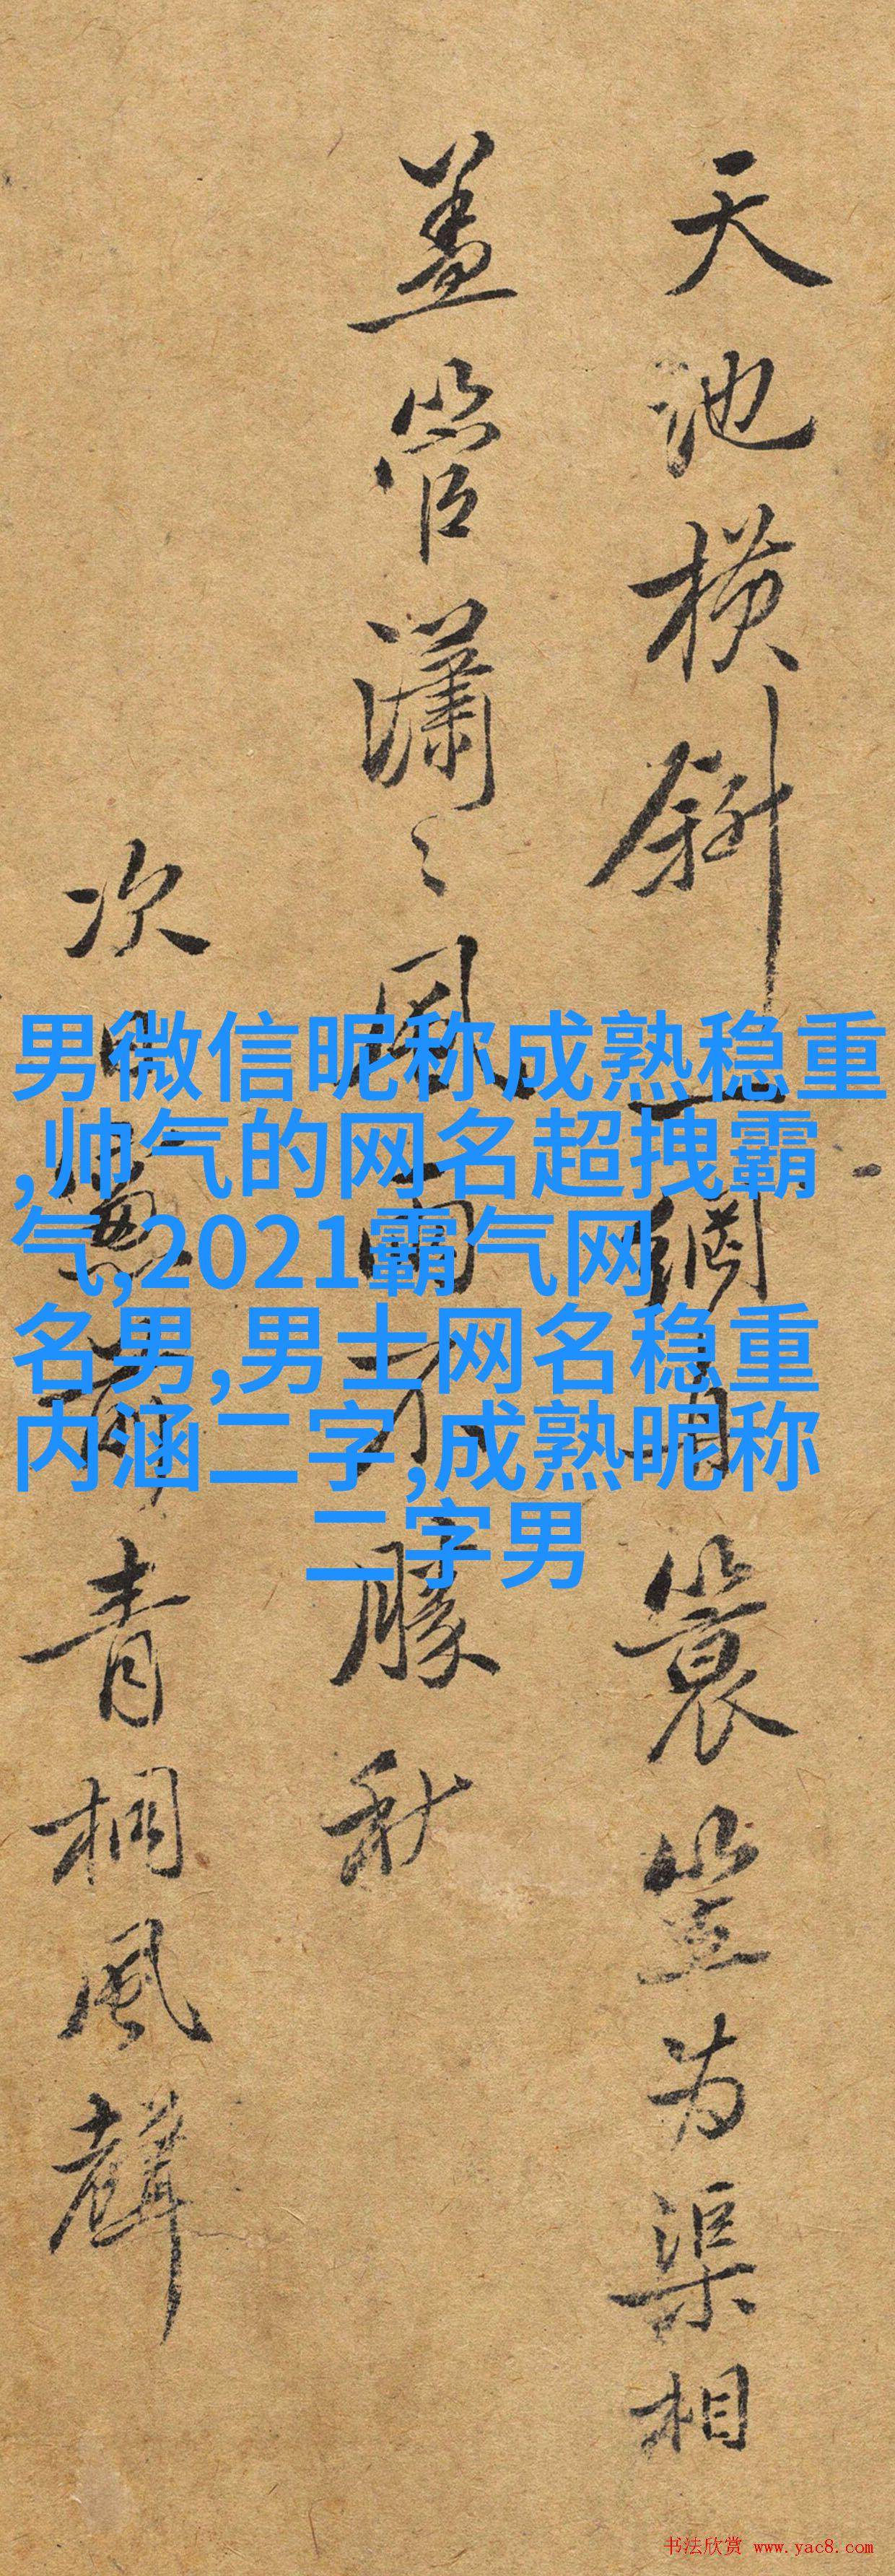 天池横斜一月蓑笠为渠相
盖管瀟〻風雨不勝秋
次日青桐風聲
男微信昵称成熟稳重
,帅气的网名超拽霸
气,2021霸气网
名男,男士网名稳重
内涵二字,成熟昵称
二字男
书法欣赏 www.yac8.com